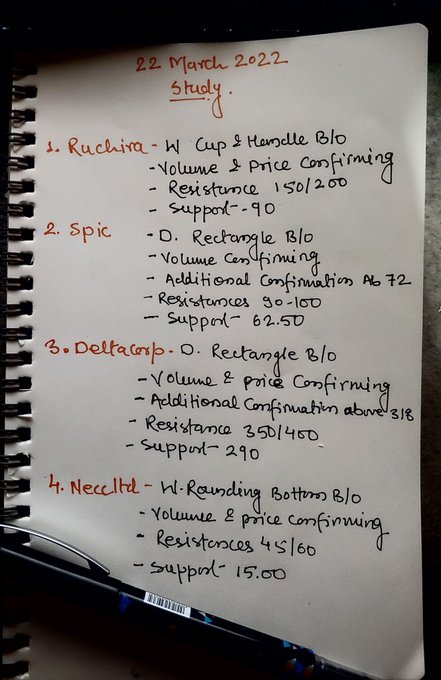 22 March 2022
Study.
1. Ruchira - W Cup & Handle B/o
- Volume & price Confirming
- Resistance 150/200
- Support - 90
2. Spic - D. Rectangle B/o
- Volume Confirming
- Additional Confirmation Ab 72
- Resistances 90-100
- Support - 62.50
3. Deltacorp - D. Rectangle B/o
- Volume & price Confirming
- Additional Confirmation above 318
- Resistance 350/400
- Support - 290
4. Neccltd - W. Rounding Bottom B/o
- Volume & price Confirming
- Resistances 45/60
- Support - 15.00